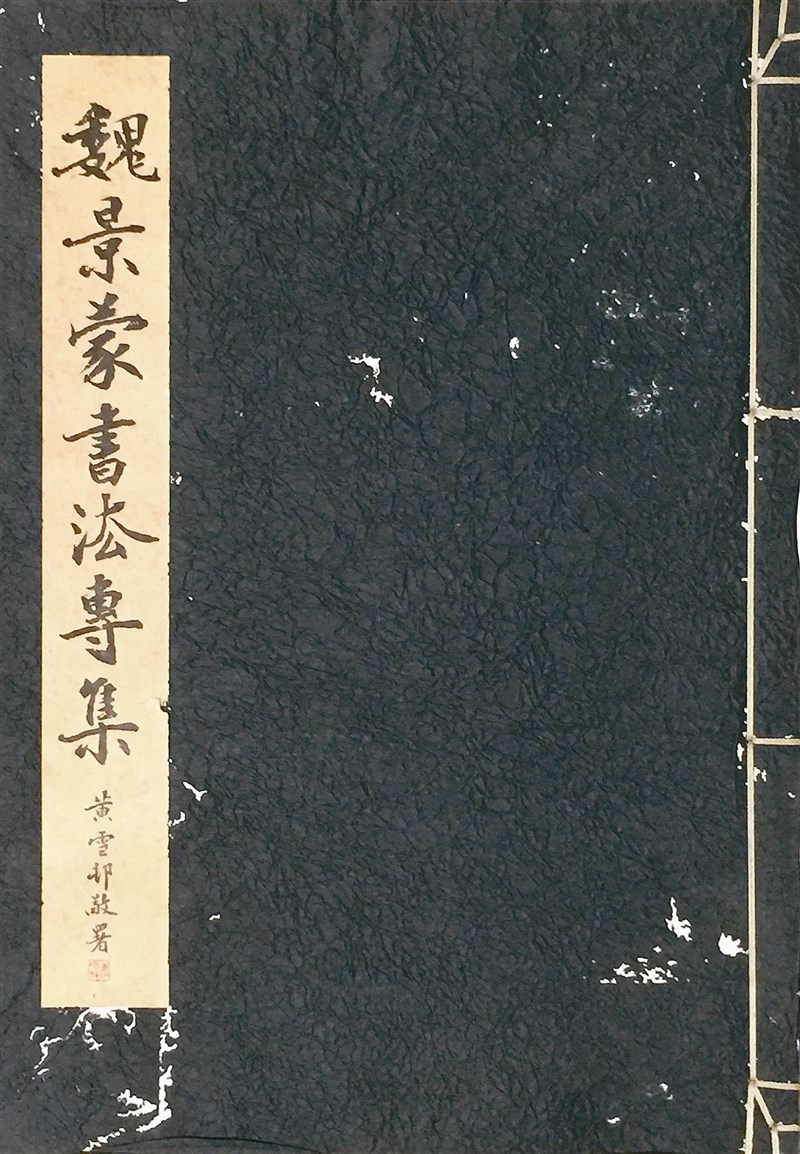 魏景蒙書法專集
黃雪邨敬署